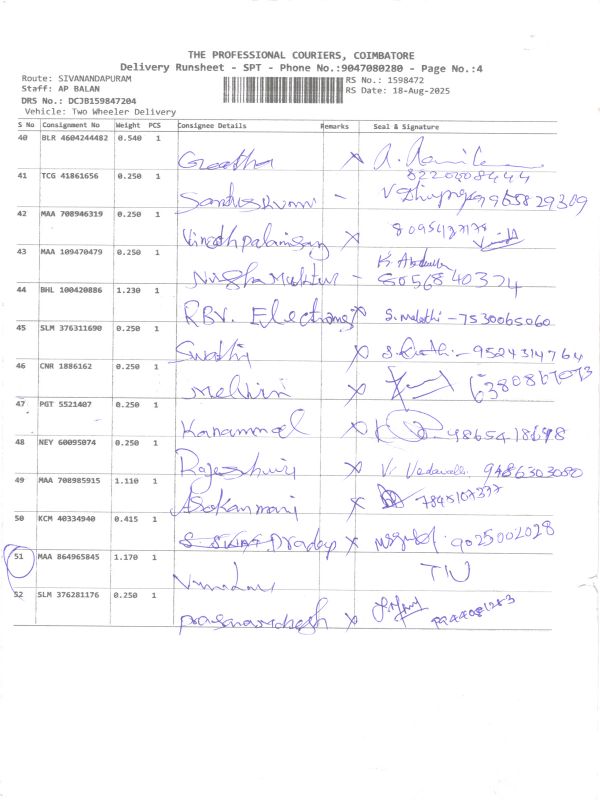 THE PROFESSIONAL COURIERS, COIMBATORE
Delivery Runsheet - SPT - Phone No.:9047080280 - Page No.:4
Route: SIVANANDAPURAM RS No.: 1598472
Staff: AP BALAN RS Date: 18-Aug-2025
DRS No.: DCJB159847204
Vehicle: Two Wheeler Delivery
S No Consignment No Weight PCS Consignee Details Remarks Seal & Signature
40 BLR 4604244482 0.540 1
Geetha X
8220208444
41 TCG 41861656 0.250 1
- 9965829309
42 MAA 708946319 0.250 1
Vinothpalanisamy X
43 MAA 109470479 0.250 1
K Abdulla
- 8056840374
44 BHL 100420886 1.230 1
RBV. X S. Malathi - 7530065060
45 SLM 376311690 0.250 1
Swathi X - 9524314764
46 CNR 1886162 0.250 1
Melvin X 6380867073
47 PGT 5521407 0.250 1
Kanammal X
48 NEY 60095074 0.250 1
Rajeshwari X V. Vedavalli 9486303080
49 MAA 708985915 1.110 1
Asokanmani X 7845107377
50 KCM 40334940 0.415 1
Pradap X 9025002028
51 MAA 864965845 1.170 1
52 SLM 376281176 0.250 1
X